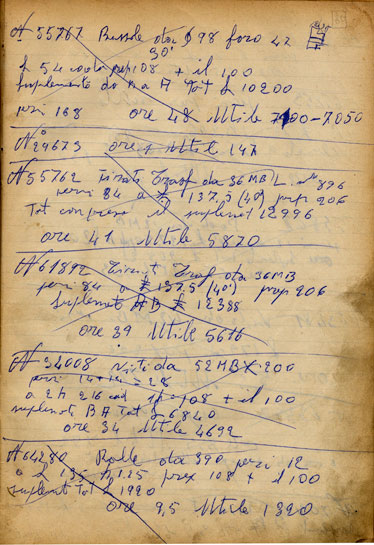 N 55767 Bussole da § 98 foro 42
30'
£ 54 cada per 108 + il 100
Suplemento da B A Tot £ 10200
pezzi 168 ore 48 Utile 7100-7050
N° 29673 ore 1 Utile 147
N 55762 Tiranti Traf da 36 MB L. 396
pezzi 84 a £ 137,5 (40') per 206
Tot compreso il suplement 12996
ore 41 Utile 5870
N 61892 Tirant Traf da 36MB
pezzi 84 a £ 137.5 (40') per 206
Suplement AB £ 12388
ore 39 Utile 5616
N 34008 Viti da 52MB X 200
pezzi 14+14 = 28
a £ 216 cad per 108 + il 100
suplement BA Tot £ 6840
ore 34 Utile 4692
N 64280 Rolle da 390 pezzi 12
a £ 135 h 1.25 per 108 + il 100
suplement Tot £ 1920
ore 9,5 Utile 1320